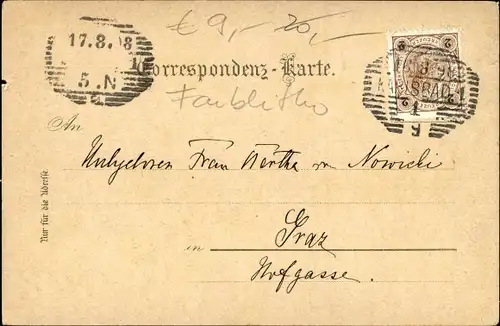 € 9,- 20,-
17.8.98
5.N
Correspondenz-Karte.
Farblitho
KARLSBAD 1
An
Frau Bertha von Nowicki
in Graz
Hofgasse.
Nur für die Adresse.